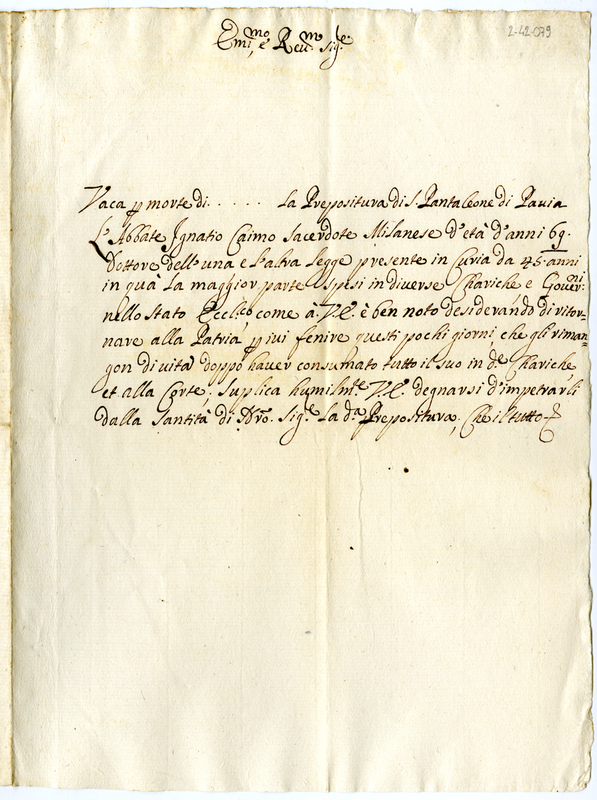 2-42-079
Emi.mo, e Reu.mo Sig.re
Vaca p morte di . . . . . La Prepositura di S. Pantaleone di Pauia
L'Abbate Ignatio Caimo Sacerdote Milanese d'età d'anni 69.
Dottore dell'una e l'altra legge presente in Curia da 45. anni
in quà la maggior parte spesi in diuerse Chariche e Gouer.ni
nello stato Eccl.co come à V.E. è ben noto desiderando di ritor=
nare alla Patria, p iui fenire questi pochi giorni che gli riman=
gon di uita doppo hauer consumato tutto il suo in de Chariche
et alla Corte; Suplica humilm.te V.E. degnarsi d'impetrarli
dalla Santità di Nro. Sig.re La d.a Prepositura, Che il tutto